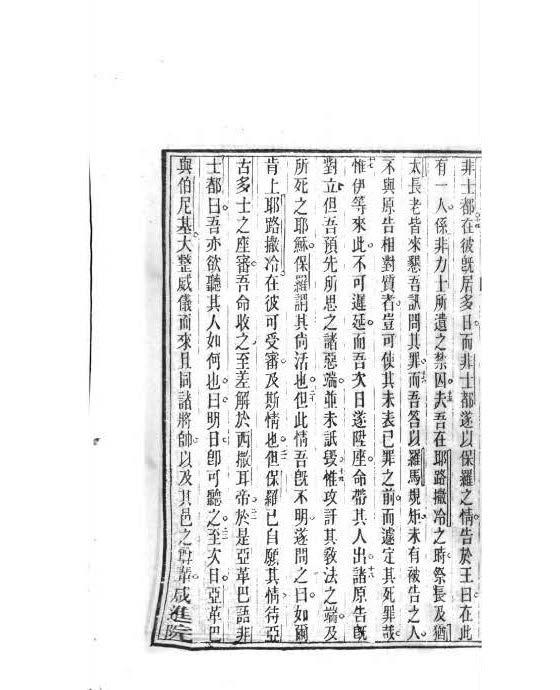 非士都在彼旣居多日而非士都遂以保羅之情告於王曰在此
有一人係非力士所遺之禁囚夫吾在耶路撒冷之時祭長及猶
太長老皆來懇吾訊問其罪而吾答以羅馬規矩未有被告之人
不與原告相對質者豈可使其未表已罪之前而遽定其死罪哉
惟伊等來此不可遲延而吾次日遂陞座命帶其人出諸原告旣
對立但吾預先所思之諸惡端並未訴及惟攻訐其敎法之端及
所死之耶穌保羅謂其尙活也但此情吾旣不明遂問之曰如爾
肯上耶路撒冷在彼可受審及斯情也但保羅已自願其情待亞
古多士之座審吾命收之至差解於西撒耳帝於是亞革巴語非
士都曰吾亦欲聽其人如何也曰明日卽可聽之至次日亞革巴
與伯尼基大整威儀而來且同諸將帥以及其邑之尊輩咸進院